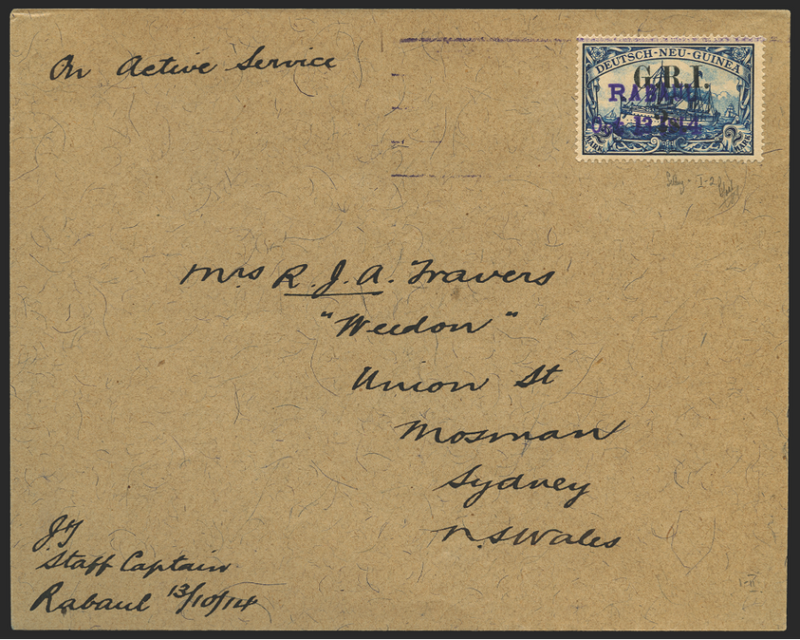 On Active Service
DEUTSCH-NEU-GUINEA
G.R.I.
RABAUL
Oct 13 1914
2 2
MARK MARK
Mrs R. J. A. Travers
"Weedon"
Union St
Mosman
Sydney
N.S Wales
JT
Staff Captain
Rabaul 13/10/14